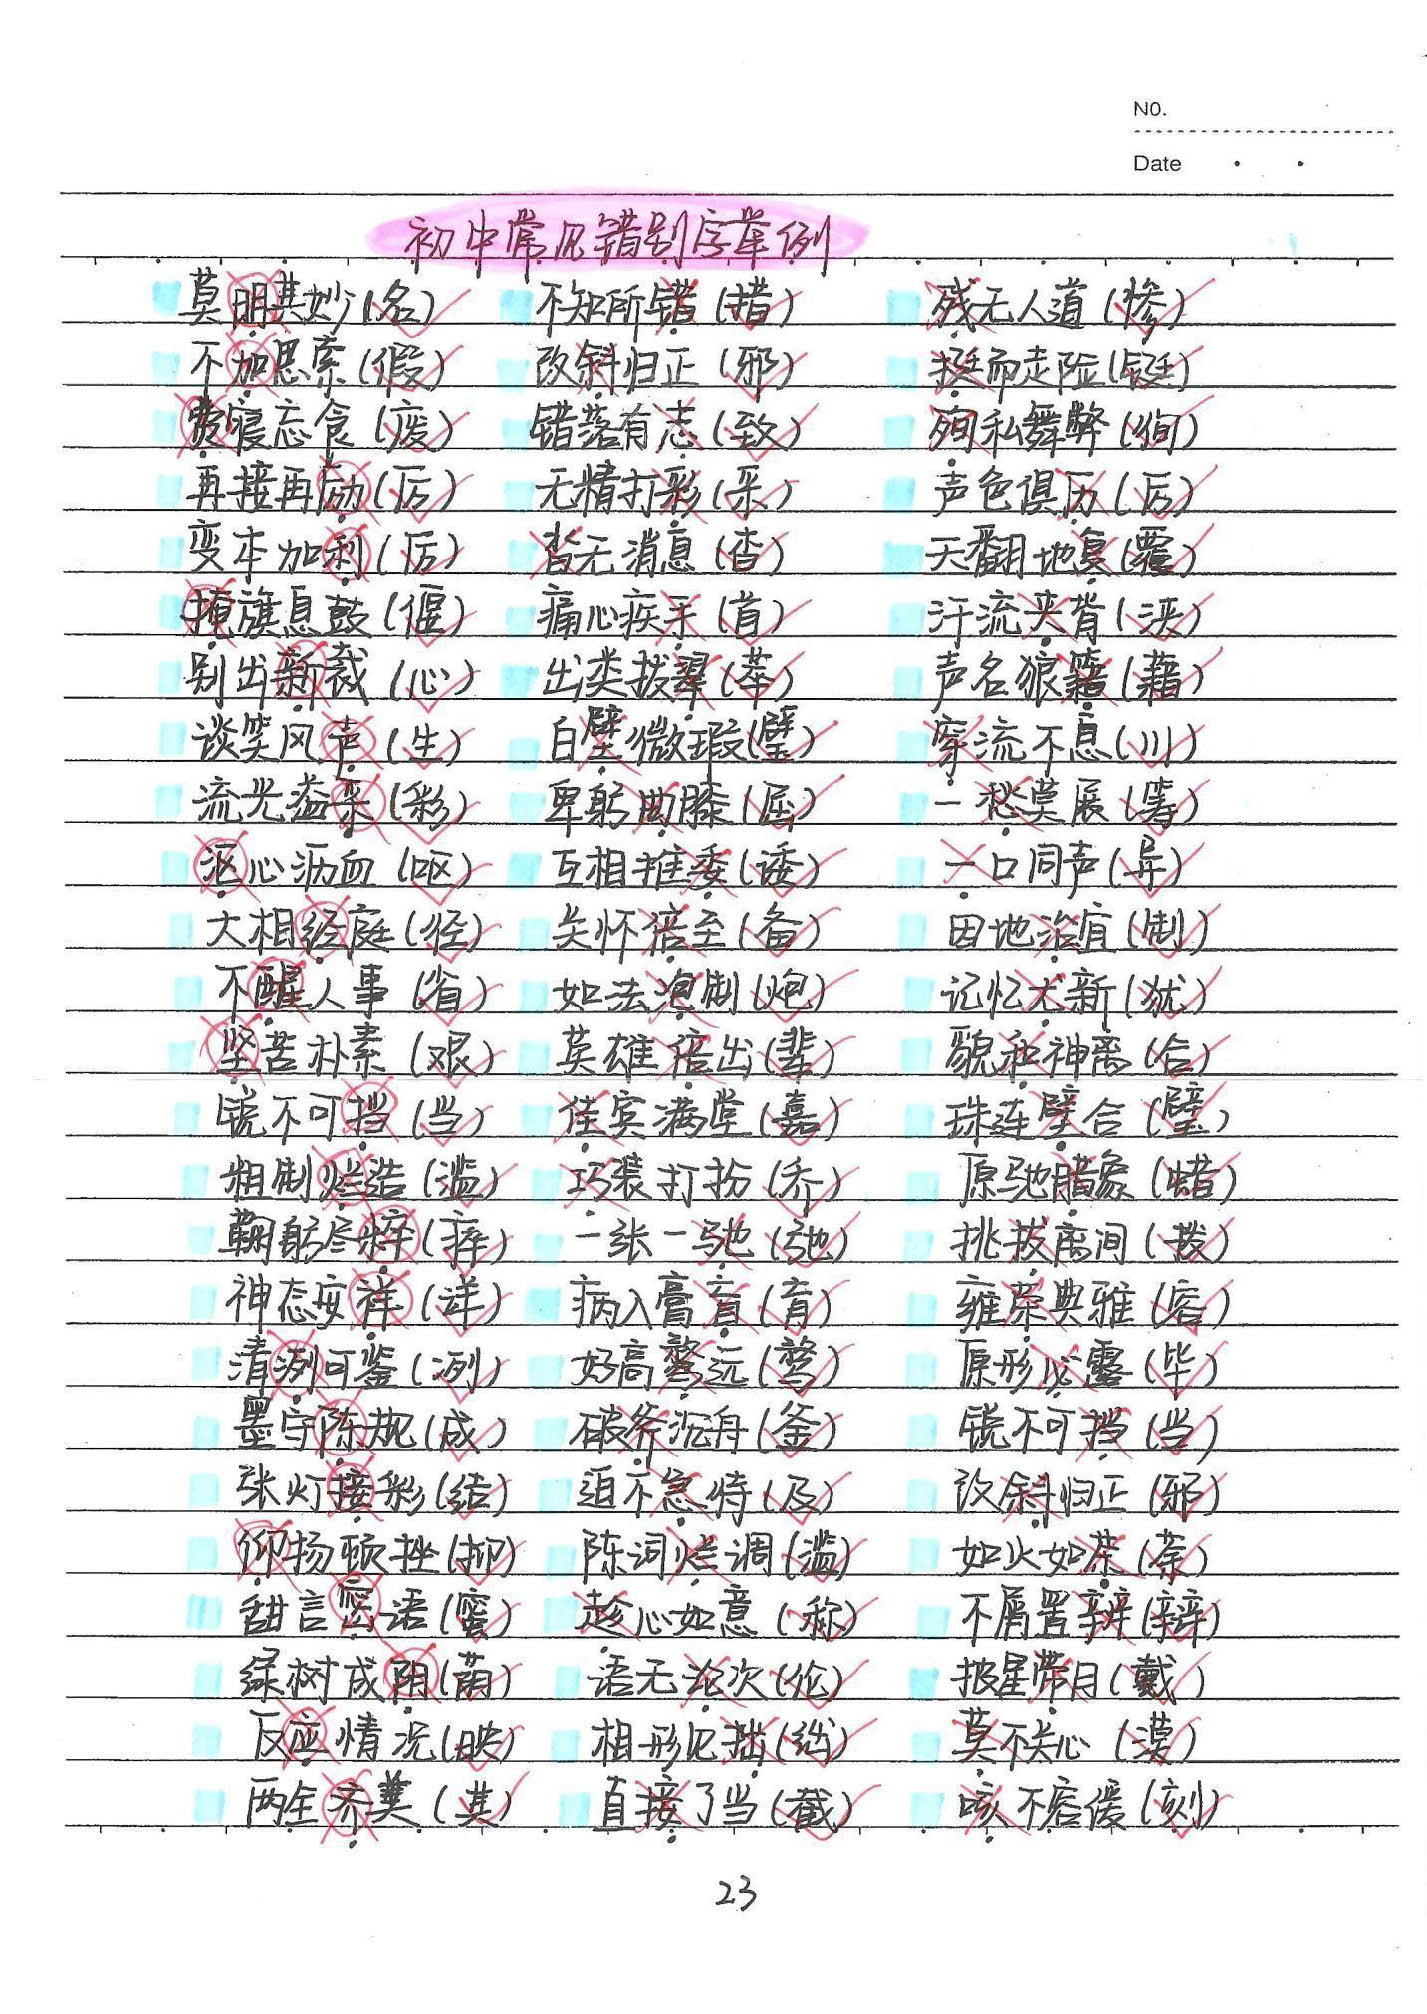 NO.
Date
初中常见错别字举例
莫明其妙(名) 不知所错(措) 残无人道(惨)
不加思索(假) 改斜归正(邪) 挺而走险(铤)
费寝忘食(废) 错落有志(致) 殉私舞弊(徇)
再接再励(厉) 无精打彩(采) 声色俱历(厉)
变本加利(厉) 杳无消息(杳) 天翻地复(覆)
掩旗息鼓(偃) 痛心疾手(首) 汗流夹背(浃)
别出新裁(心) 出类拔翠(萃) 声名狼籍(藉)
谈笑风声(生) 白壁微瑕(璧) 穿流不息(川)
流光溢采(彩) 卑躬曲膝(屈) 一愁莫展(筹)
沤心沥血(呕) 互相推委(诿) 一口同声(异)
大相经庭(径) 关怀倍至(备) 因地治宜(制)
不醒人事(省) 如法泡制(炮) 记忆尤新(犹)
坚苦朴素(艰) 英雄倍出(辈) 貌和神离(合)
锐不可挡(当) 佳宾满堂(嘉) 珠连壁合(璧)
粗制烂造(滥) 巧装打扮(乔) 原驰腊象(蜡)
鞠躬尽粹(瘁) 一张一驰(弛) 挑拔离间(拨)
神态安祥(详) 病入膏盲(肓) 雍荣典雅(容)
清洌可鉴(冽) 好高骜远(鹜) 原形必露(毕)
墨守陈规(成) 破斧沉舟(釜) 锐不可挡(当)
张灯接彩(结) 迫不急待(及) 改斜归正(邪)
仰扬顿挫(抑) 陈词烂调(滥) 如火如茶(荼)
甜言密语(蜜) 趁心如意(称) 不屑置辨(辩)
绿树成阴(荫) 语无沦次(伦) 披星带月(戴)
反应情况(映) 相形见拙(绌) 莫不关心(漠)
两全齐美(其) 直接了当(截) 咳不容缓(刻)
23